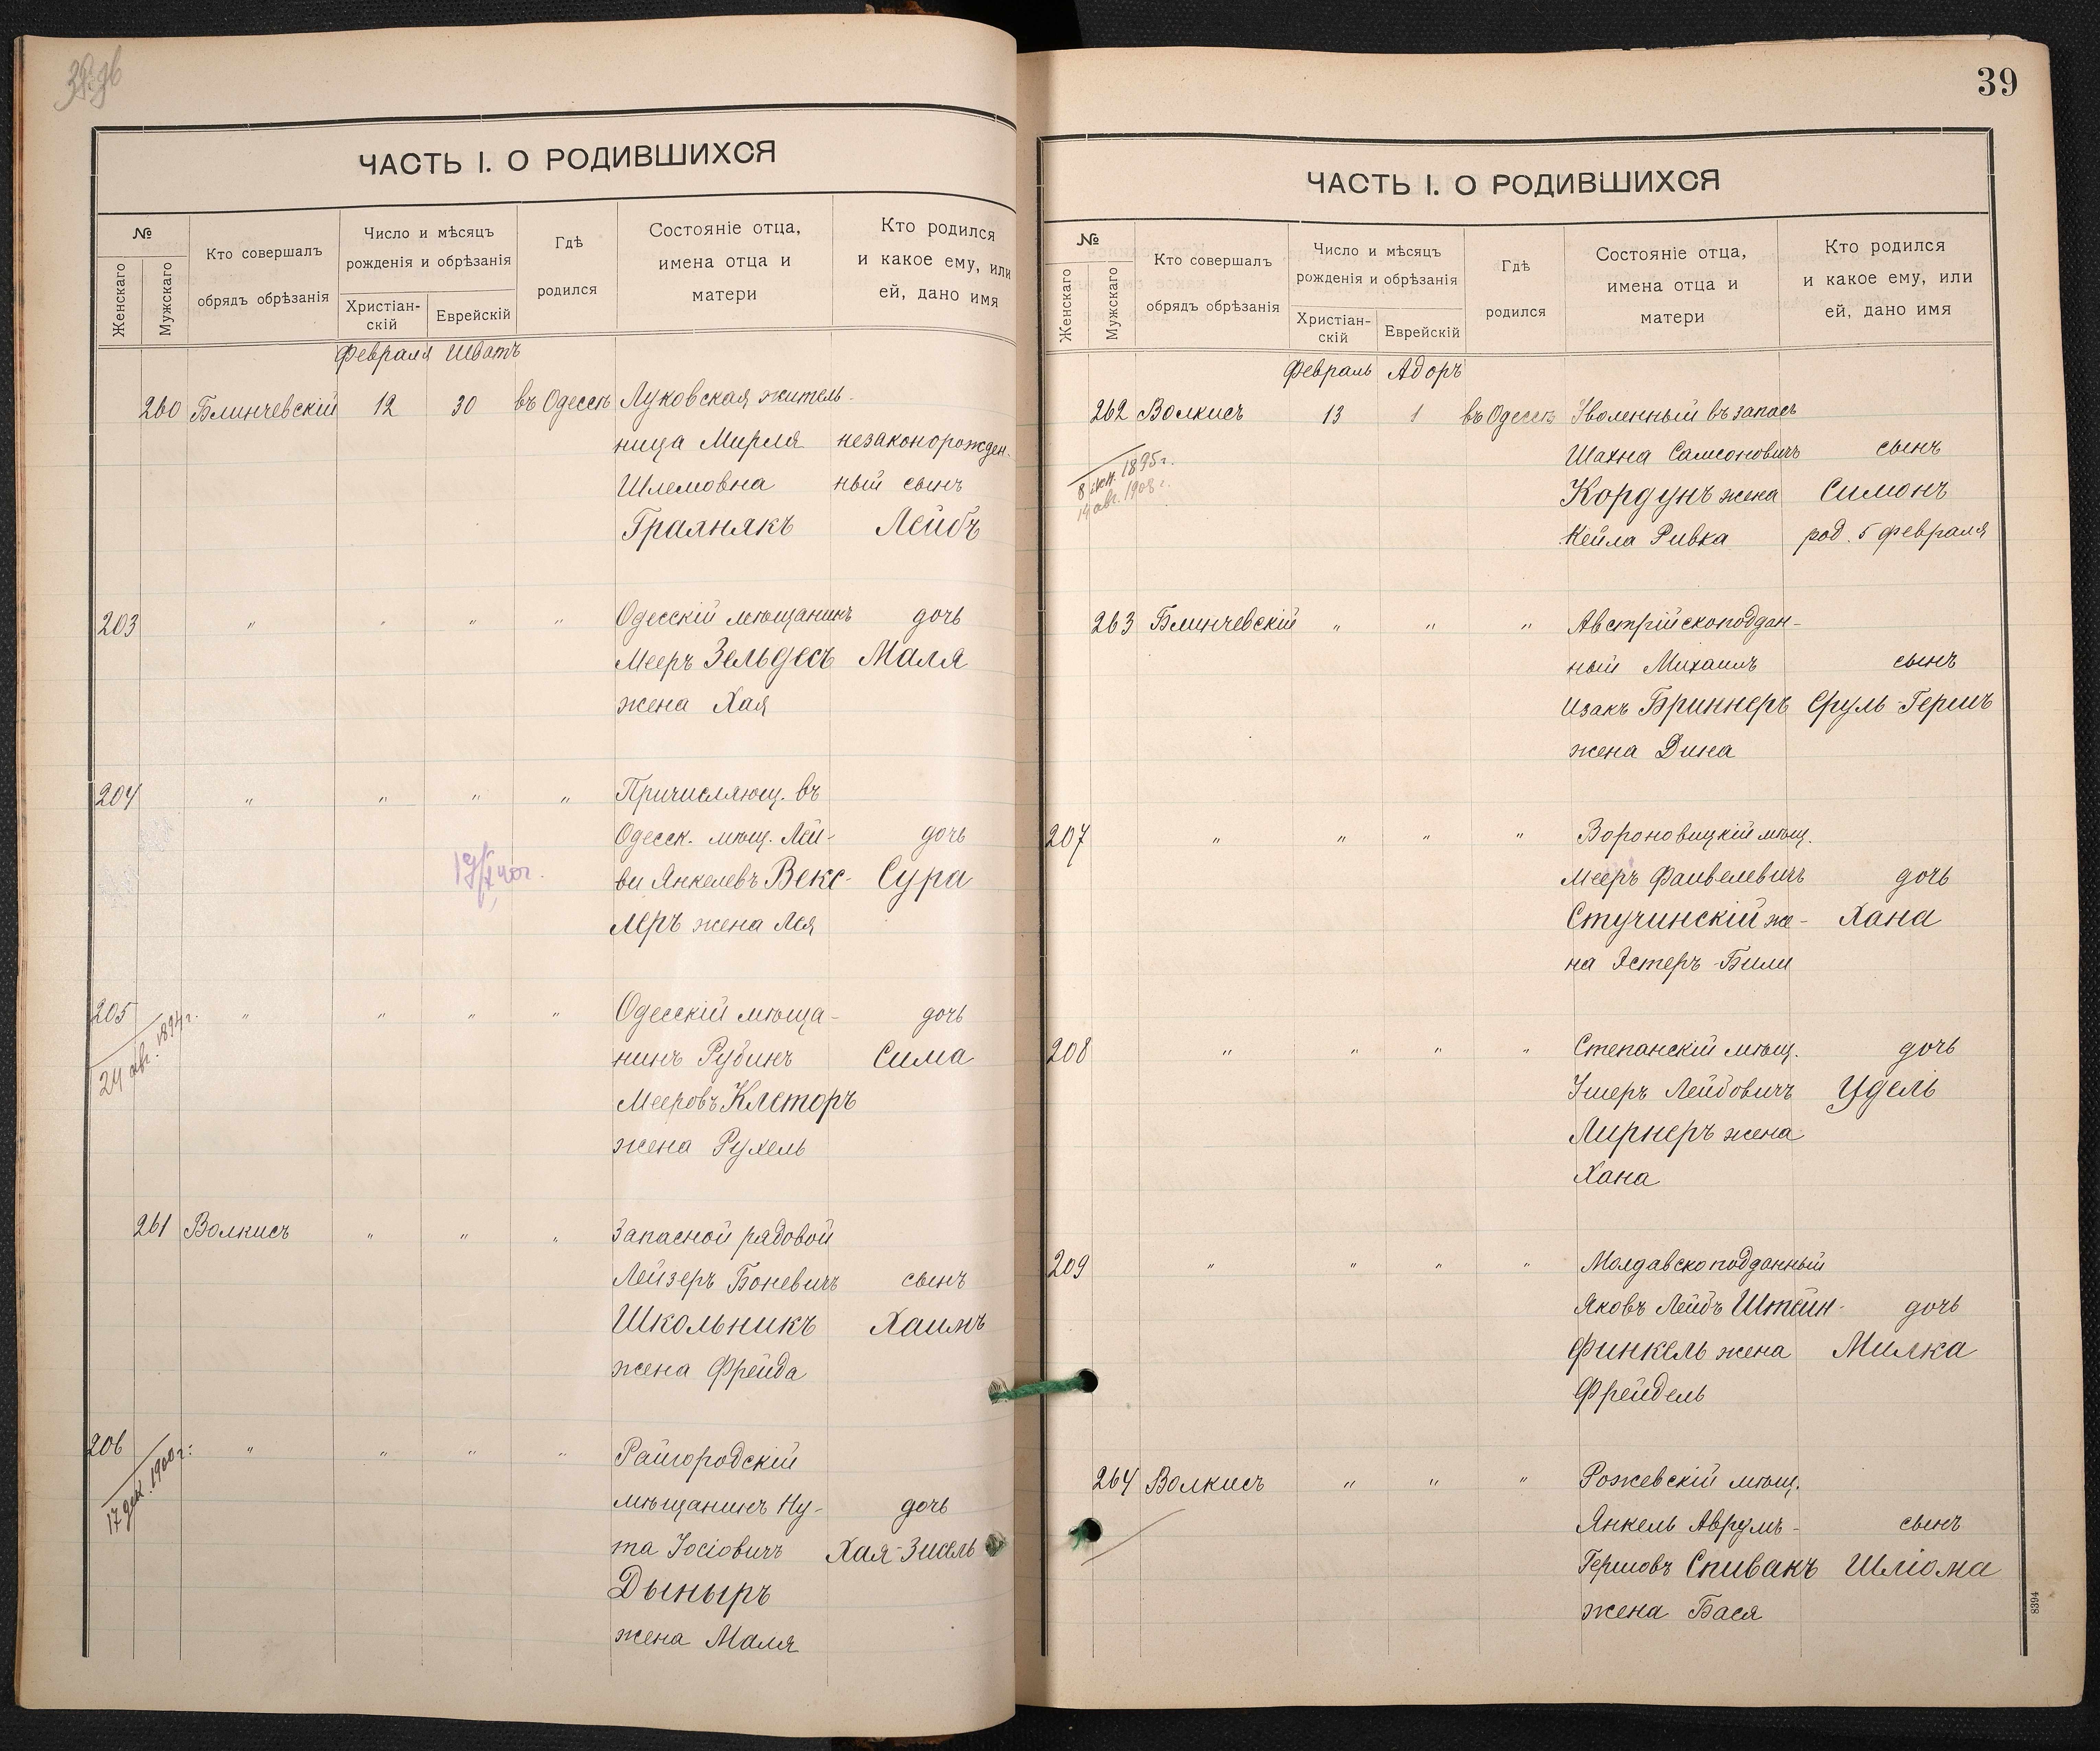 ЧАСТЬ I. О РОДИВШИХСЯ
№
Женскаго
Мужскаго
Кто совершалъ
обрядъ обрѣзанія
Число и мѣсяцъ
рожденія и обрѣзанія
Христіан-
скій
Еврейскій
Гдѣ
родился
Состояніе отца,
имена отца и
матери
Кто родился
и какое ему, или
ей, дано имя
Февраля Шватъ
260 Блинчевскій 12 30 въ Одессѣ Луковская житель-
ница Мирля незаконорожден.
Шлемовна ный сынъ
Граянякъ Лейбъ
203 " " " " Одесскій мѣщанинъ дочь
Мееръ Зельдесъ Маля
жена Хая
204 " " " " Причисляющ. въ
Одесск. мѣщ. Лей- дочь
ви Янкелевъ Векс- Сура
леръ жена Лея
205 " " " " Одесскій мѣща- дочь
24 авг. 1894 г.
нинъ Рубинъ Сима
Мееровъ Клеторъ
жена Рухель
261 Волкисъ " " " Запасной рядовой
Лейзеръ Боневичъ сынъ
Школьникъ Хаимъ
жена Фрейда
206 " " " " Райгородскій
17 дек. 1900 г.
мѣщанинъ Ну- дочь
та Іосіовичъ Хая-Зисель
Дыныръ
жена Маля
39
ЧАСТЬ I. О РОДИВШИХСЯ
№
Женскаго
Мужскаго
Кто совершалъ
обрядъ обрѣзанія
Число и мѣсяцъ
рожденія и обрѣзанія
Христіан-
скій
Еврейскій
Гдѣ
родился
Состояніе отца,
имена отца и
матери
Кто родился
и какое ему, или
ей, дано имя
Февраль Адоръ
262 Волкисъ 13 1 въ Одессѣ Уволенный въ запасъ
Шахна Самсоновичъ сынъ
1895 г.
авг. 1908 г.
Кордунъ жена Симонъ
Кейла Ривка род. 5 февраля
263 Блинчевскій " " " Австрійскоподдан-
ный Михаилъ сынъ
Изакъ Бриннеръ Сруль Гершъ
жена Дина
207 " " " " Вороновицкій мѣщ.
Мееръ Файвелевичъ дочь
Стучинскій же- Хана
на Эстеръ Били
208 " " " " Степанскій мѣщ. дочь
Ушеръ Лейбовичъ Удель
Лирнеръ жена
Хана
209 " " " " Молдавскоподданный
Яковъ Лейбъ Штейн- дочь
финкель жена Милка
Фрейдель
264 Волкисъ " " " Рожевскій мѣщ.
Янкель Аврумъ- сынъ
Гершовъ Спивакъ Шліома
жена Бася
8394